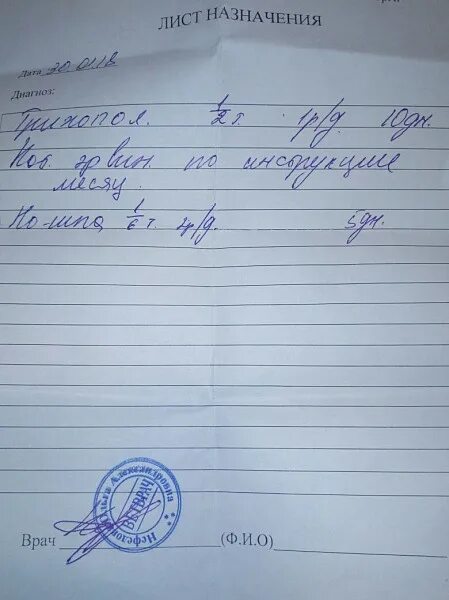 ЛИСТ НАЗНАЧЕНИЯ
Дата 30.01.18
Диагноз:
Трихопол. 1/2 т. 1р/д 10дн.
по инструкции
месяц.
Но-шпа 1/6 т. 2р/д. 5дн.
Александровна
ВЕТВРАЧ
Врач (Ф.И.О)